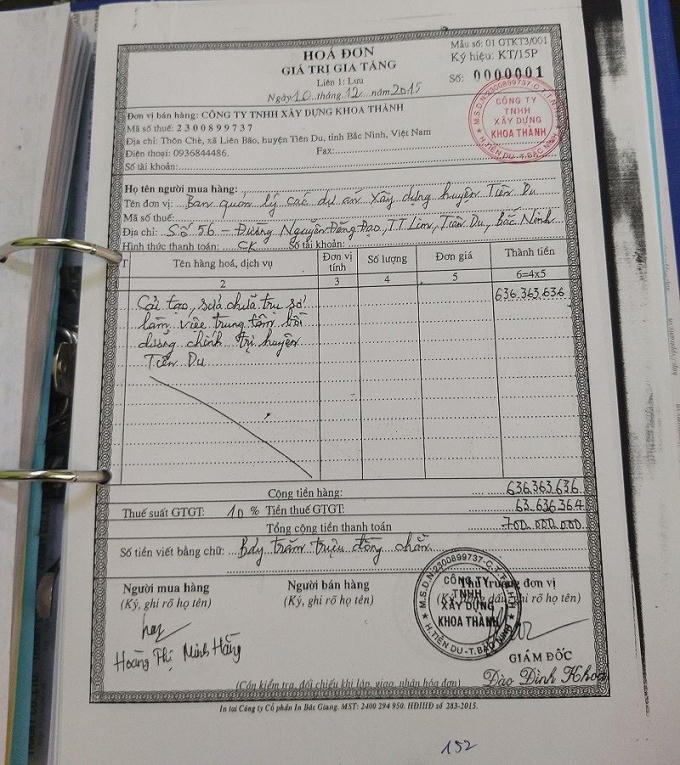 HOÁ ĐƠN
GIÁ TRỊ GIA TĂNG
Liên 1: Lưu
Ngày 10 tháng 12 năm 2015
Mẫu số: 01 GTKT3/001
Ký hiệu: KT/15P
Số: 0000001
Đơn vị bán hàng: CÔNG TY TNHH XÂY DỰNG KHOA THÀNH
Mã số thuế: 2300899737
Địa chỉ: Thôn Chè, xã Liên Bão, huyện Tiên Du, tỉnh Bắc Ninh, Việt Nam
Điện thoại: 0936844486. Fax:
Số tài khoản:
M.S.D.N:2300899737-C.T.T.N.H.H
CÔNG TY
TNHH
XÂY DỰNG
KHOA THÀNH
H.TIÊN DU-T.BẮC NINH
Họ tên người mua hàng:
Tên đơn vị: Ban quản lý các dự án xây dựng huyện Tiên Du
Mã số thuế:
Địa chỉ: Số 56 - Đường Nguyễn Đăng Đạo, TT Lim, Tiên Du, Bắc Ninh
Hình thức thanh toán: CK Số tài khoản:
T Tên hàng hoá, dịch vụ Đơn vị tính Số lượng Đơn giá Thành tiền
2 3 4 5 6=4x5
Cải tạo, sửa chữa trụ sở 636.363.636
làm việc trung tâm bồi
dưỡng chính trị huyện
Tiên Du
Cộng tiền hàng: 636.363.636
Thuế suất GTGT: 10 % Tiền thuế GTGT: 63.636.364
Tổng cộng tiền thanh toán 700.000.000
Số tiền viết bằng chữ: Bảy trăm triệu đồng chẵn
Người mua hàng Người bán hàng Thủ trưởng đơn vị
(Ký, ghi rõ họ tên) (Ký, ghi rõ họ tên) (Ký, đóng dấu, ghi rõ họ tên)
M.S.D.N:2300899737-C.T.T.N.H.H
CÔNG TY
TNHH
XÂY DỰNG
KHOA THÀNH
H.TIÊN DU-T.BẮC NINH
Hoàng Thị Minh Hằng
GIÁM ĐỐC
Đào Đình Khoa
(Cần kiểm tra, đối chiếu khi lập, giao, nhận hóa đơn)
In tại Công ty Cổ phần In Bắc Giang. MST: 2400 294 950. HĐIHĐ số 283-2015.
152